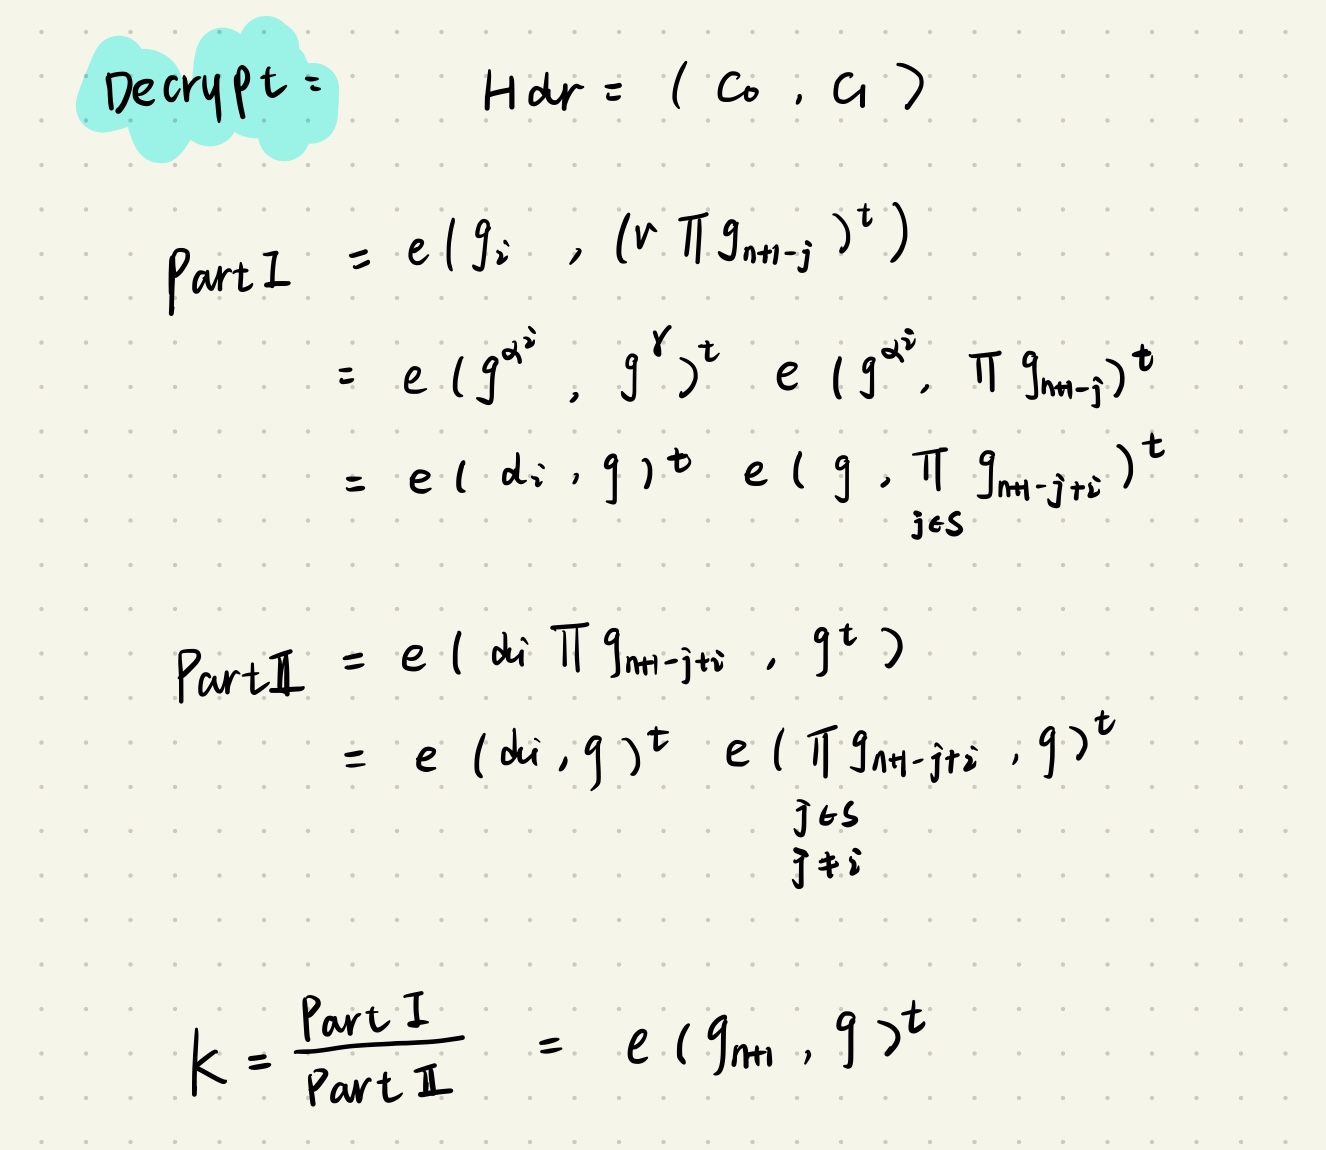 Decrypt: Hdr = ( C₀ , C₁ )
Part I = e ( gᵢ , (v ∏ g_{n+1-j})^t )
= e ( g^{α^i} , g^γ )^t e ( g^{α^i} , ∏ g_{n+1-j} )^t
= e ( dᵢ , g )^t e ( g , ∏_{j∈S} g_{n+1-j+i} )^t
Part II = e ( dᵢ ∏ g_{n+1-j+i} , g^t )
= e ( dᵢ , g )^t e ( ∏_{j∈S j≠i} g_{n+1-j+i} , g )^t
k = Part I / Part II = e ( g_{n+1} , g )^t